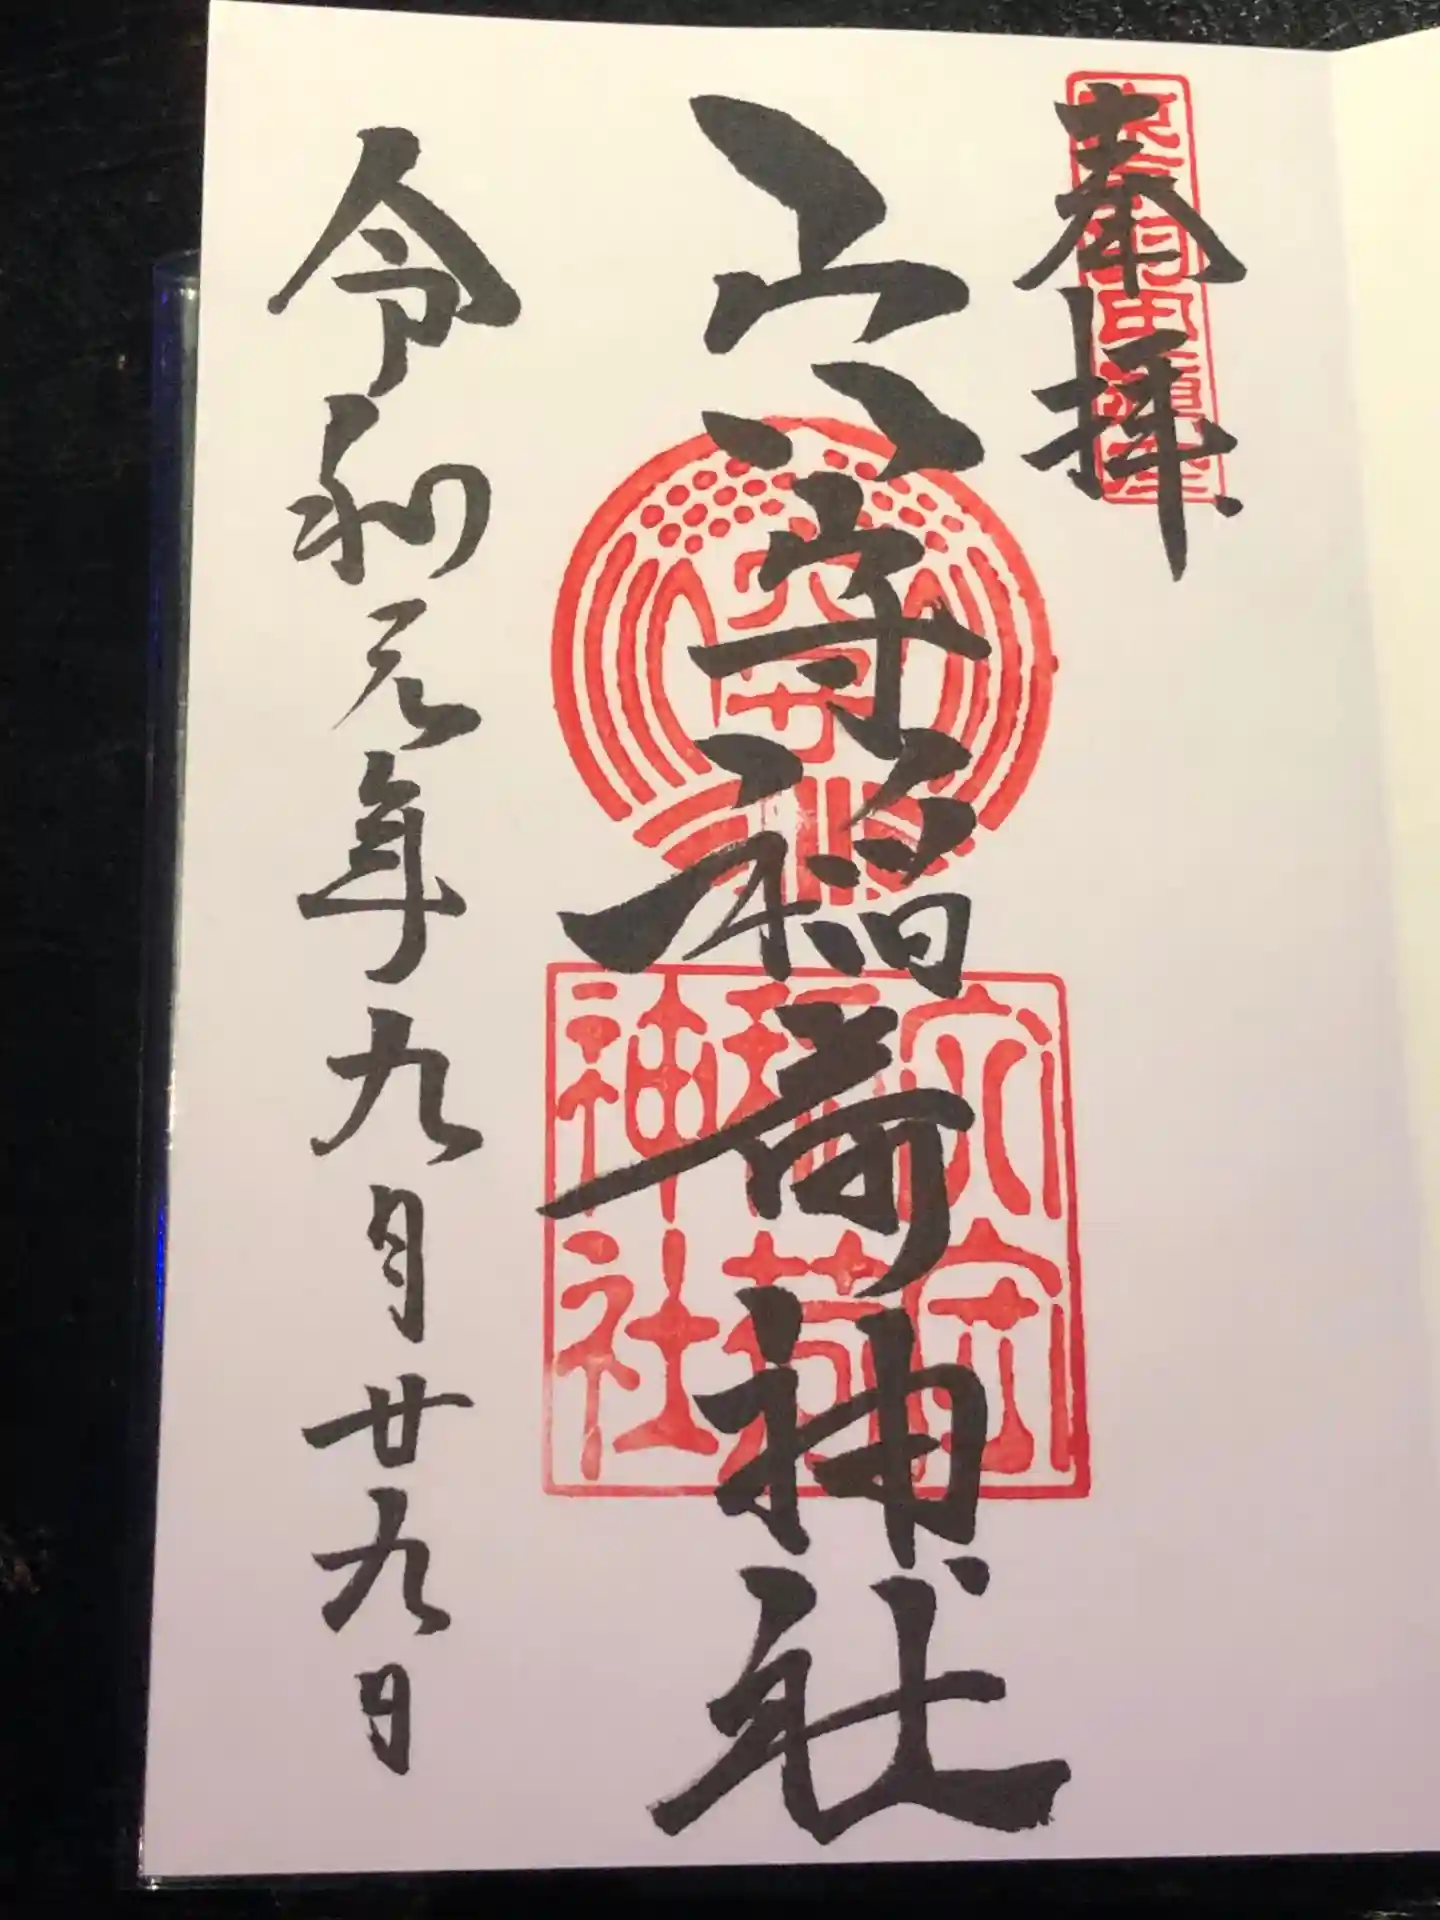 奉拝
穴守稲荷神社
穴守
稲荷
神社
令和元年九月廿九日